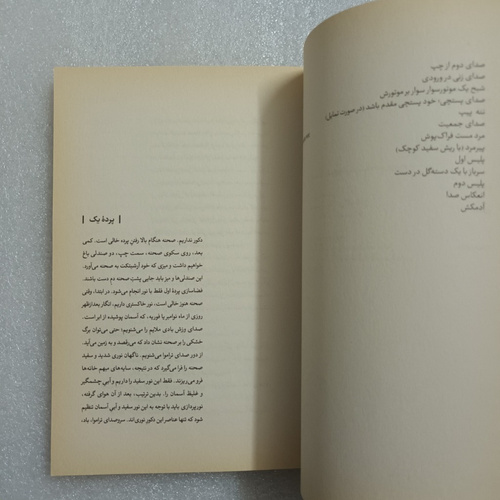 صدای دوم از چپ
صدای زنی در ورودی
شبح یک موتورسوار سوار بر موتورش
صدای پستچی: خود پستچی مقدم باشد (در صورت تمایل)
ننه پیپ
صدای جمعیت
مرد مست فراک‌پوش
پیرمرد (با ریش سفید کوچک)
پلیس اول
سرباز با یک دسته‌گل در دست
پلیس دوم
انعکاس صدا
آدمکش
پردهٔ یک
دکور نداریم. صحنه هنگام بالا رفتن پرده خالی است. کمی
بعد، روی سکوی صحنه، سمت چپ، دو صندلی باغ
خواهیم داشت و میزی که خود آرشیتکت به صحنه می‌آورد.
این صندلی‌ها و میز باید جایی پشت صحنه دم دست باشند.
فضاسازی پردهٔ اول فقط با نور انجام می‌شود. در ابتدا، وقتی
صحنه هنوز خالی است، نور خاکستری داریم، انگار بعدازظهر
روزی از ماه نوامبر یا فوریه، که آسمان پوشیده از ابر است.
صدای وزش بادی ملایم را می‌شنویم؛ حتی می‌توان برگ
خشکی را بر صحنه نشان داد که می‌رقصد و به زمین می‌آید.
از دور صدای تراموا می‌شنویم. ناگهان نوری شدید و سفید
صحنه را فرا می‌گیرد که در نتیجه، سایه‌های مبهم خانه‌ها
فرو می‌ریزند. فقط این نور سفید را داریم و آبی چشمگیر
و غلیظ آسمان را. بدین ترتیب، بعد از آن هوای گرفته،
نورپردازی باید با توجه به این نور سفید و آبی آسمان تنظیم
شود که تنها عناصر این دکور نوری‌اند. سروصدای تراموا، باد،